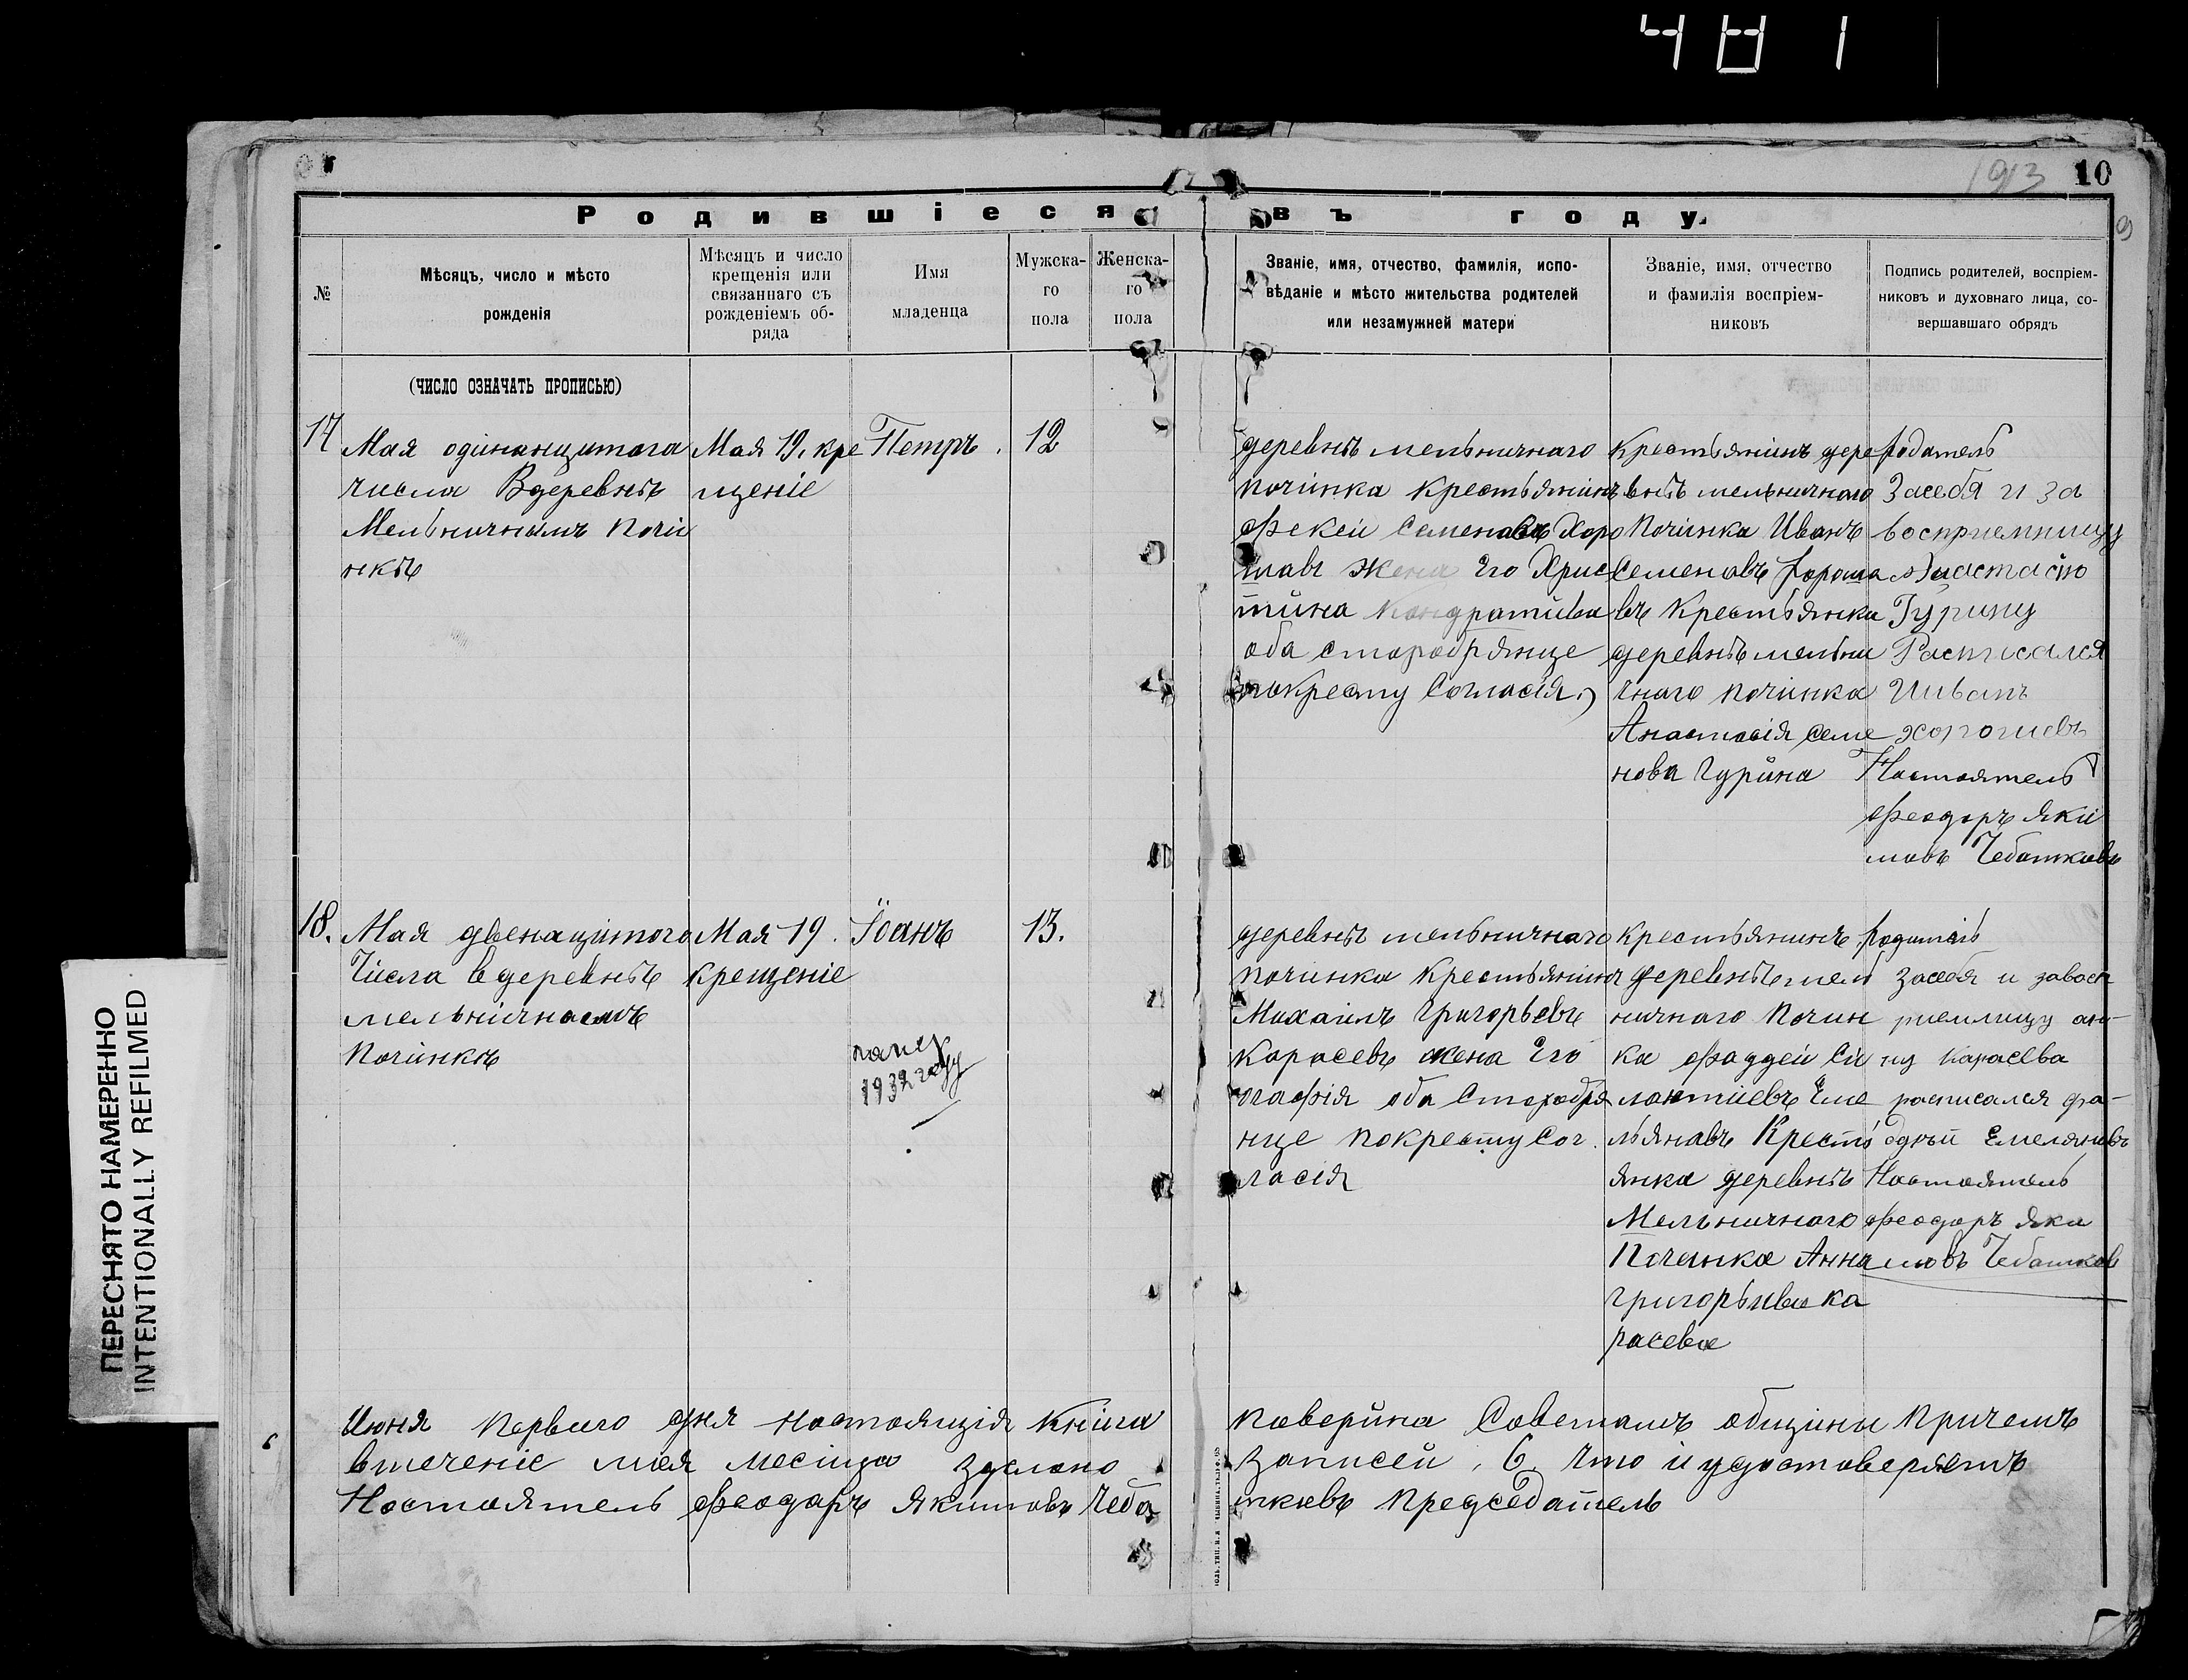 481
1913 10
9
Родившіеся въ году.
№
Мѣсяцъ, число и мѣсто
рожденія
Мѣсяцъ и число
крещенія или
связаннаго съ
рожденіемъ об-
ряда
Имя
младенца
Мужска-
го
пола
Женска-
го
пола
Званіе, имя, отчество, фамилія, испо-
вѣданіе и мѣсто жительства родителей
или незамужней матери
Званіе, имя, отчество
и фамилія воспріем-
никовъ
Подпись родителей, воспріем-
никовъ и духовнаго лица, со-
вершавшаго обрядъ
(ЧИСЛО ОЗНАЧАТЬ ПРОПИСЬЮ)
17
Мая одінанцитага
числа Вдеревнѣ
Мельничнымъ почи
нкѣ
Мая 19. кре
щеніе
Петръ.
12
деревнѣ мельничнаго
починка крестьянинъ
Фекеи Семеновъ Хоро
шавъ жена Его Хрис
тина Кондратива
оба старобрянце
покресту Согласія,
Крестьянинъ дере
внѣ мельничнаго
Починка Иванъ
Семеновъ Хороша
въ Крестьянка
деревнѣ мельни
чнаго починка
Анастасія Семе
нова Гурина
Засебя и за
восприемницу
Анастасію
Гурину
Расписался
Ииванъ
хорошевъ
Настоятель
Феодоръ Яки
мовъ Чебатковъ
18.
Мая двенацитого
Числа вдеревнѣ
мельничномъ
Починкѣ
Мая 19.
крещеніе
Іоанъ
1932 году
13.
деревнѣ мельничнаго
починка Крестьянинъ
Михаилъ Григорьевъ
Карасевъ жена Его
Агафія оба Старобря
нце покресту Сог
ласія
крестьянинъ
деревнѣ мель
ничнаго Почин
ка Фаддеи Си
лантиевъ Еме
льяновъ Кресть
янка деревнѣ
Мельничнаго
Починка Анна
Григорьивна Ка
расева
родитель
засебя и завасп
риемницу ан-
ну Карасева
расписался фа-
дѣй Емеляновъ
Настоятель
Феодоръ Яки
мовъ Чебатков
Июня Первого дня настоящія Книга поверина Советамъ общины Причемъ
втечение мая месица зделано записеи. 6. что и удостоверяетъ
Настоятель Феодаръ Якимовъ Чеба тковъ председатель
ПЕРЕСНЯТО НАМЕРЕННО
INTENTIONALLY REFILMED